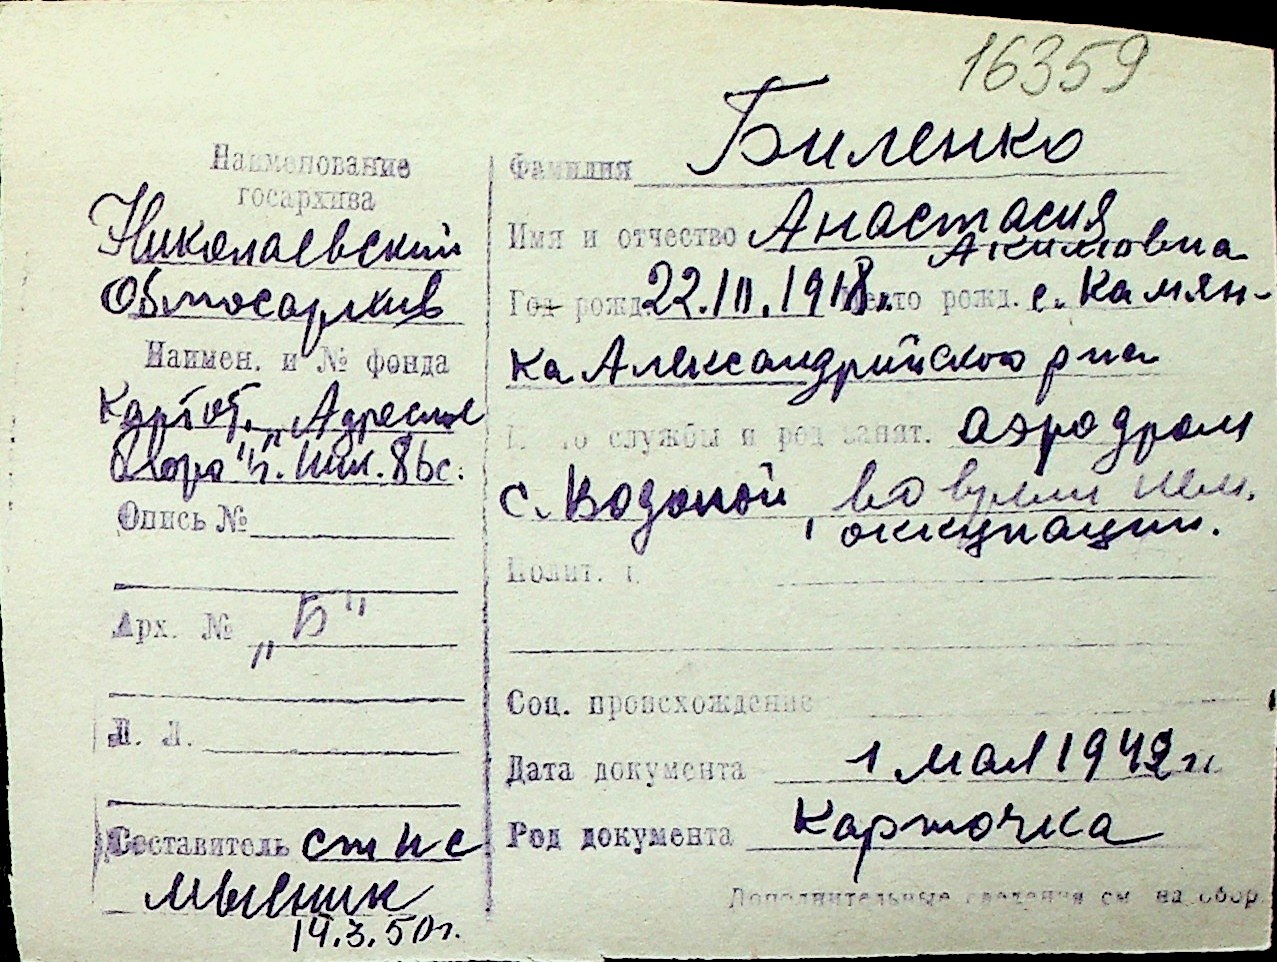 16359
Наименование
госархива
Николаевский
Облгосархив
Наимен. и № фонда
Картот. Адресное
бюро "Б".
Опись №
Арх. № „Б"
Л. Л.
Составитель ст н с
14.3.50г.
Фамилия Биленко
Имя и отчество Анастасия
Акимовна
Год рожд. 22.III.1918г. Место рожд. с. Камян-
ка Александрийского р на
службы и род занят. аэродром
с. Водопой, во время нем.
оккупации.
Полит.
Соц. происхождение
Дата документа 1 мая 1942 г.
Род документа Карточка
Дополнительные сведения см на обор.